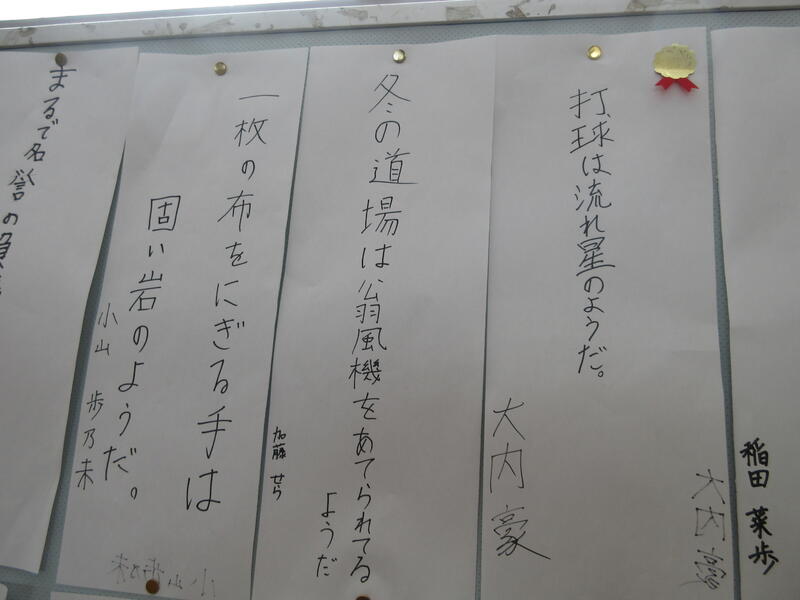 稲田 菜歩
打球は流れ星のようだ。
大内豪
大内豪
冬の道場は翁風機をあてられてる
ようだ
加藤 せら
一枚の布をにぎる手は
固い岩のようだ。
小山 歩乃未
小山歩乃未
まるで名誉の負